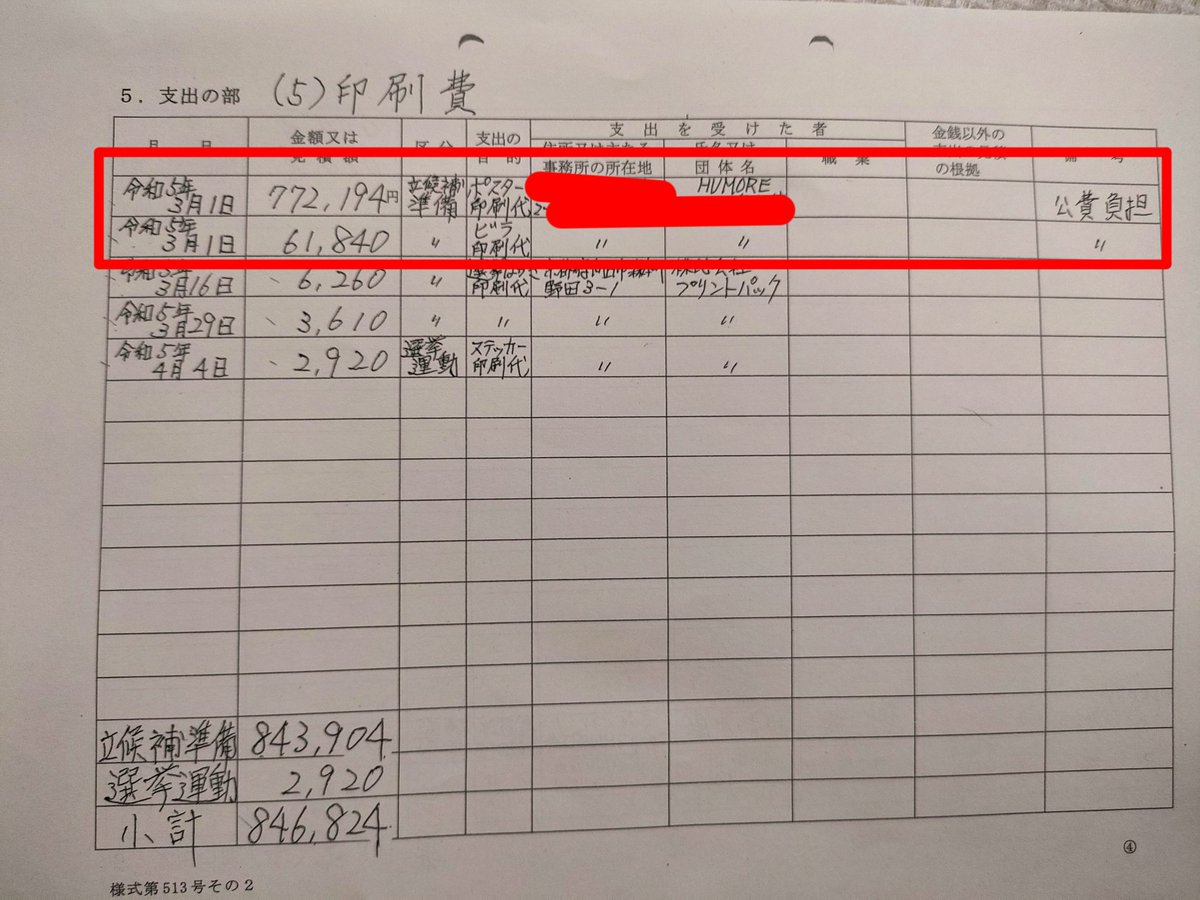 5. 支出の部 (5)印刷費
月 日 金額又は 区分 支出の 支出を受けた者 金銭以外の 備考
見積額 目的 事務所の所在地 団体名 職業 の根拠
令和5年 立候補 ポスター HUMORE
3月1日 772,194円 準備 印刷代 2- 公費負担
令和5年 ビラ
3月1日 61,840 〃 印刷代 〃 〃 〃
令和5年 株式会社
3月16日 6,260 〃 印刷代 野田3-1 プリントパック
令和5年
3月29日 3,610 〃 〃 〃 〃
令和5年 選挙 ステッカー
4月4日 2,920 運動 印刷代 〃 〃
立候補準備 843,904
選挙運動 2,920
小計 846,824
④
様式第513号その2